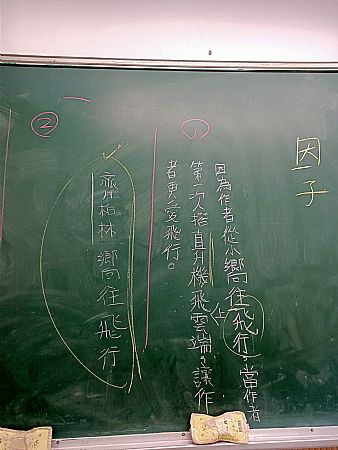 因子
①
因為作者從小嚮往飛行。當作者
第一次搭直升機飛雲端,讓作
者更愛飛行。
②
齊柏林嚮往飛行